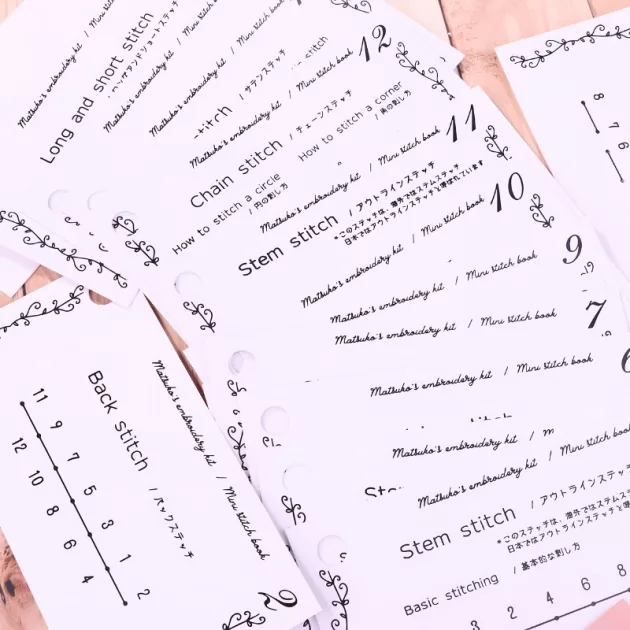 Matsuko's embroidery kit / Mini stitch
Long and short stitch
/ ロングアンドショートステッチ
Matsuko's embroidery kit / Mini stitch
Matsuko's embroidery kit / Mini stitch
/ サテンステッチ
Matsuko's embroidery kit / Mini stitch book 12
Chain stitch / チェーンステッチ
How to stitch a circle
/ 円の刺し方
How to stitch a corner
/ 角の刺し方
Matsuko's embroidery kit / Mini stitch book 11
Stem stitch / アウトラインステッチ
*このステッチは、海外ではステムステッチ
日本ではアウトラインステッチと呼ばれています
Matsuko's embroidery kit / Mini stitch book 10
Matsuko's embroidery kit / Mini stitch book 9
Matsuko's embroidery kit / Mini stitch book 7
Matsuko's embroidery kit / Mini stitch book 6
Matsuko's embroidery kit /
Matsuko's embroidery kit / Mini stitch book
Stem stitch / アウトラインステッチ
*このステッチは、海外ではステムステッ
日本ではアウトラインステッチと
Basic stitching / 基本的な刺し方
3 2 4 6 8
8
6
Matsuko's embroidery kit / Mini stitch book 2
Back stitch / バックステッチ
11 9 7 5 3 1
12 10 8 6 4 2